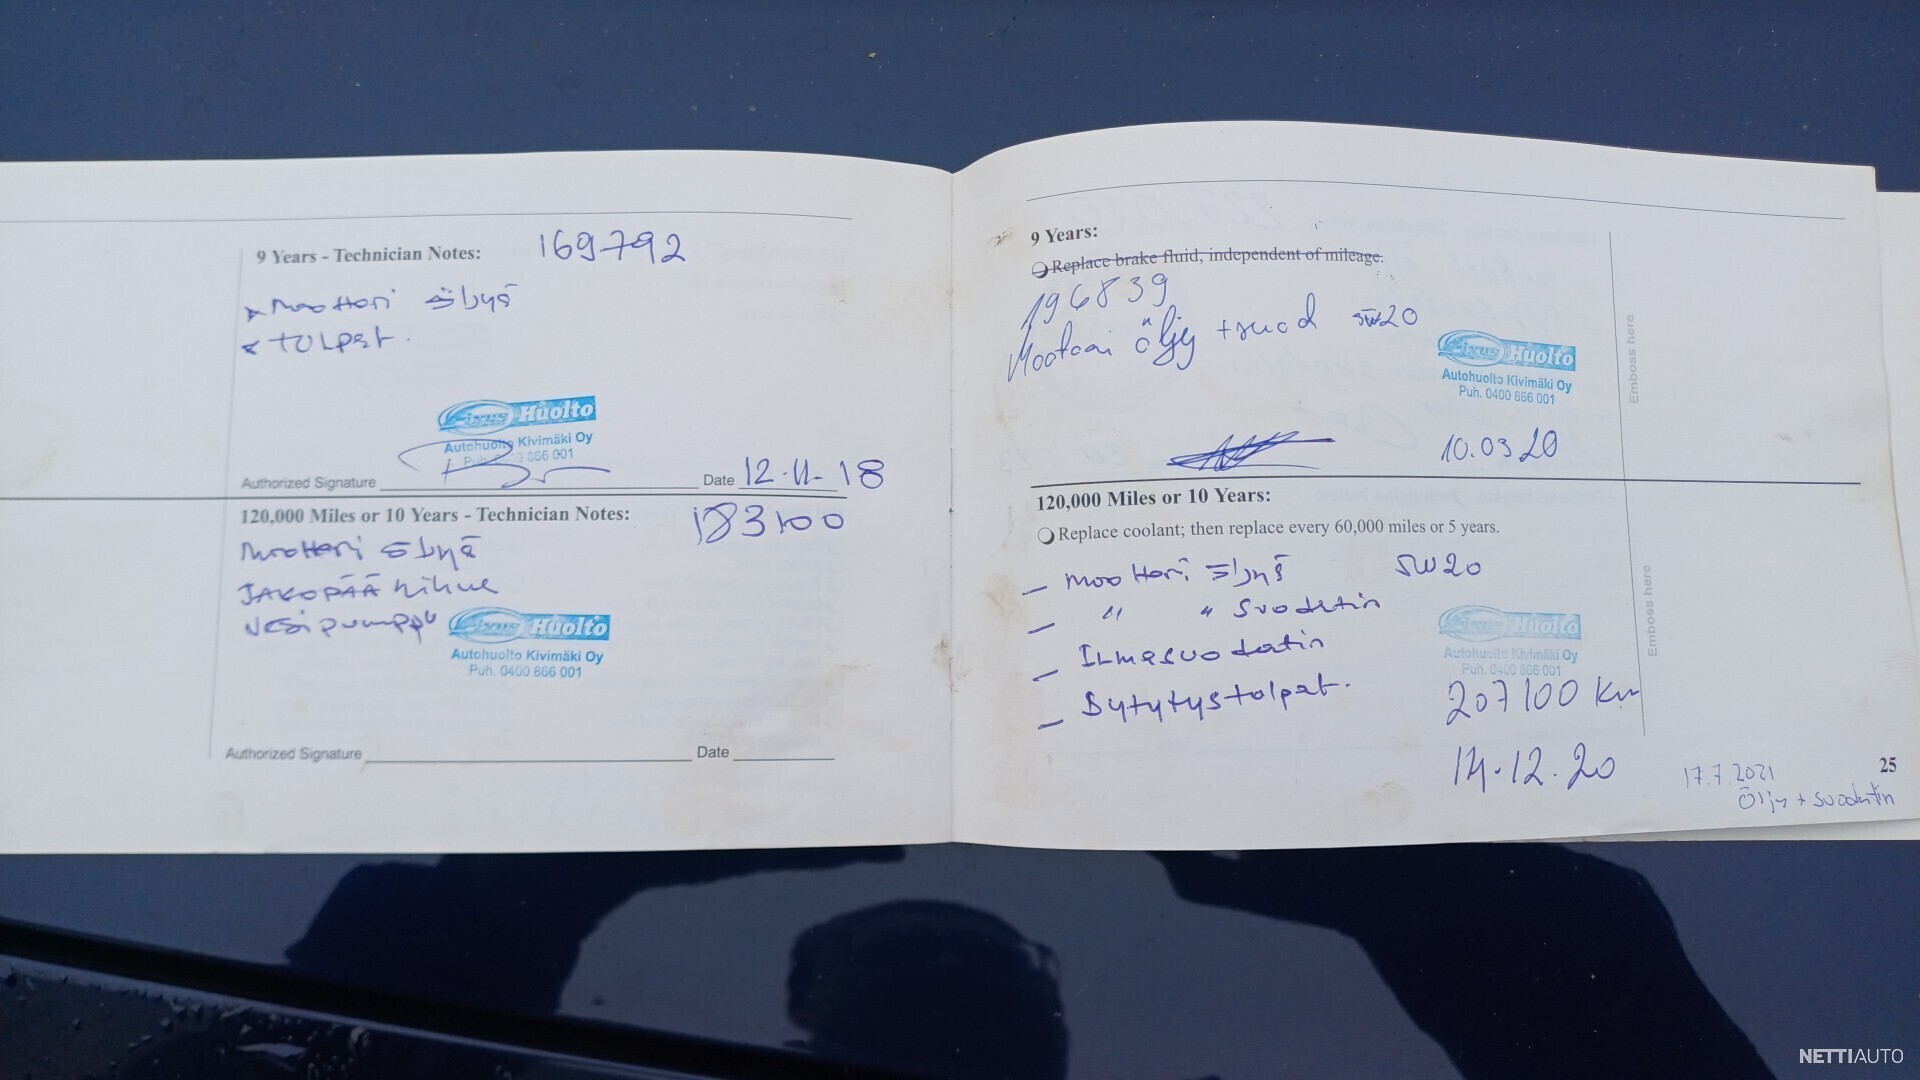 9 Years - Technician Notes: 169792
Moottori öljyä
TULPAT.
Fixus Huolto
Autohuolto Kivimäki Oy
Puh. 0400 866 001
Authorized Signature Date 12.11.18
120,000 Miles or 10 Years - Technician Notes: 183100
Moottori öljyä
JAKOPÄÄ hihna
Vesipumppu
Fixus Huolto
Autohuolto Kivimäki Oy
Puh. 0400 866 001
Authorized Signature Date
9 Years:
Replace brake fluid, independent of mileage.
196839
Moottori öljy + suod 5W20
Fixus Huolto
Autohuolto Kivimäki Oy
Puh. 0400 866 001
10.03 20
Emboss here
120,000 Miles or 10 Years:
Replace coolant; then replace every 60,000 miles or 5 years.
– Moottori öljyä 5W20
– " " suodatin
– ILmasuodatin
– Sytytystolpat.
Fixus Huolto
Autohuolto Kivimäki Oy
Puh. 0400 866 001
207100 Km
14.12.20
Emboss here
25
17.7.2021
Öljy + suodatin
NETTIAUTO